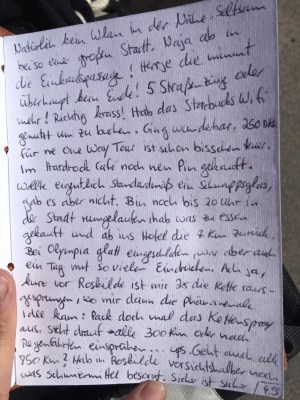 Natürlich kein Wlan in der Nähe. Seltsam
bei so einer großen Stadt. Naja ab in
die Einkaufspassage! Herrje die nimmt
überhaupt kein Ende! 5 Straßenzüge oder
mehr! Richtig krass! Hab das Starbucks Wifi
genutzt um zu buchen. Ging wunderbar. 250 DKK
für ne One Way Tour ist schon bisschen teuer.
Im Hardrock Café noch nen Pin gekauft.
Wollte eigentlich standardmäß ein Schnappsglas,
gab es aber nicht. Bin noch bis 20 Uhr in
der Stadt rumgelaufen, hab was zu essen
gekauft und ab ins Hotel die 7 Km zurück.
Bei Olympia glatt eingeschlafen, war aber auch
ein Tag mit so vielen Eindrücken. Ach ja,
kurz vor Roskilde ist mir 2x die Kette raus-
gesprungen, wo mir dann die phänomenale
Idee kam: Pack doch mal das Kettenspray
aus. Steht drauf alle 300 Km oder nach
Regenfahrten einsprühen... ups. Geht auch alle
850 Km? Hab in Roskilde vorsichtshalber noch
was Schmiermittel besorgt. Sicher ist sicher!